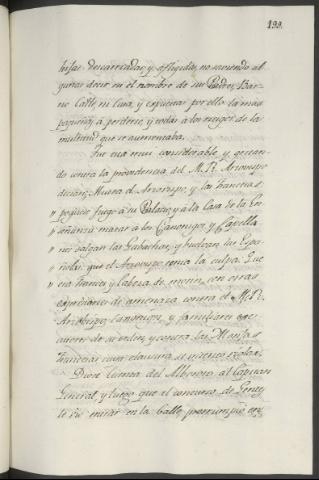 199.
hijas descarriadas, y afligidas, no saviendo al
gunas decir ni el nombre de sus Padres, Bar-
rio Calle, ni Casa, y expuestas por ello las mas
pequeñas à perderse, y todas à los riesgos de la
multitud que se aumentaba.
Fue esta mui considerable, y gritan-
do contra la providencia del M. R. Arzovispo
decian: Muera el Arzovispo, y las francesas,
" peguese fuego à su Palacio, y à la Casa de la En-
" señanza matar à los Canonigos, y Capella-
" nes salgan las Gabachas, y buelvan las Espa-
" ñolas: que el Arzovispo tenia la culpa. Que
" era frances y Cabeza de motin, con otras
expresiones de amenaza contra el M. R.
Arzobispo, Canonigos, y familiares
de su orden, y contra las Monjas
francesas cuya clausura
Diose cuenta del Alboroto al Capitan
General, y luego que el concurso de Gente
le vio entrar en la Calle, prorrumpió en